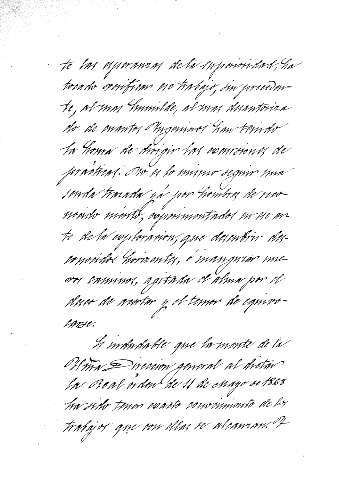 te las esperanzas de la superioridad, ha
tocado verificar un trabajo, sin preceden-
te, al mas humilde, al mas desautoriza-
do de cuantos Ingenieros han tenido
la honra de dirigir las escursiones de
prácticas. No es lo mismo seguir una
senda trazada yá por hombres de reco-
nocido mérito, esperimentados en el ar-
te de la esploracion, que descubrir des-
conocidos horizontes, e inaugurar nue-
vos caminos, agitada el alma por el
deseo de acertar y el temor de equivo-
carse.
Es indudable que la mente de la
Direccion general al dictar
la Real órden de 11 de Mayo de 1868
ha sido tener exacto conocimiento de los
trabajos que con ellas se alcanzan. Y